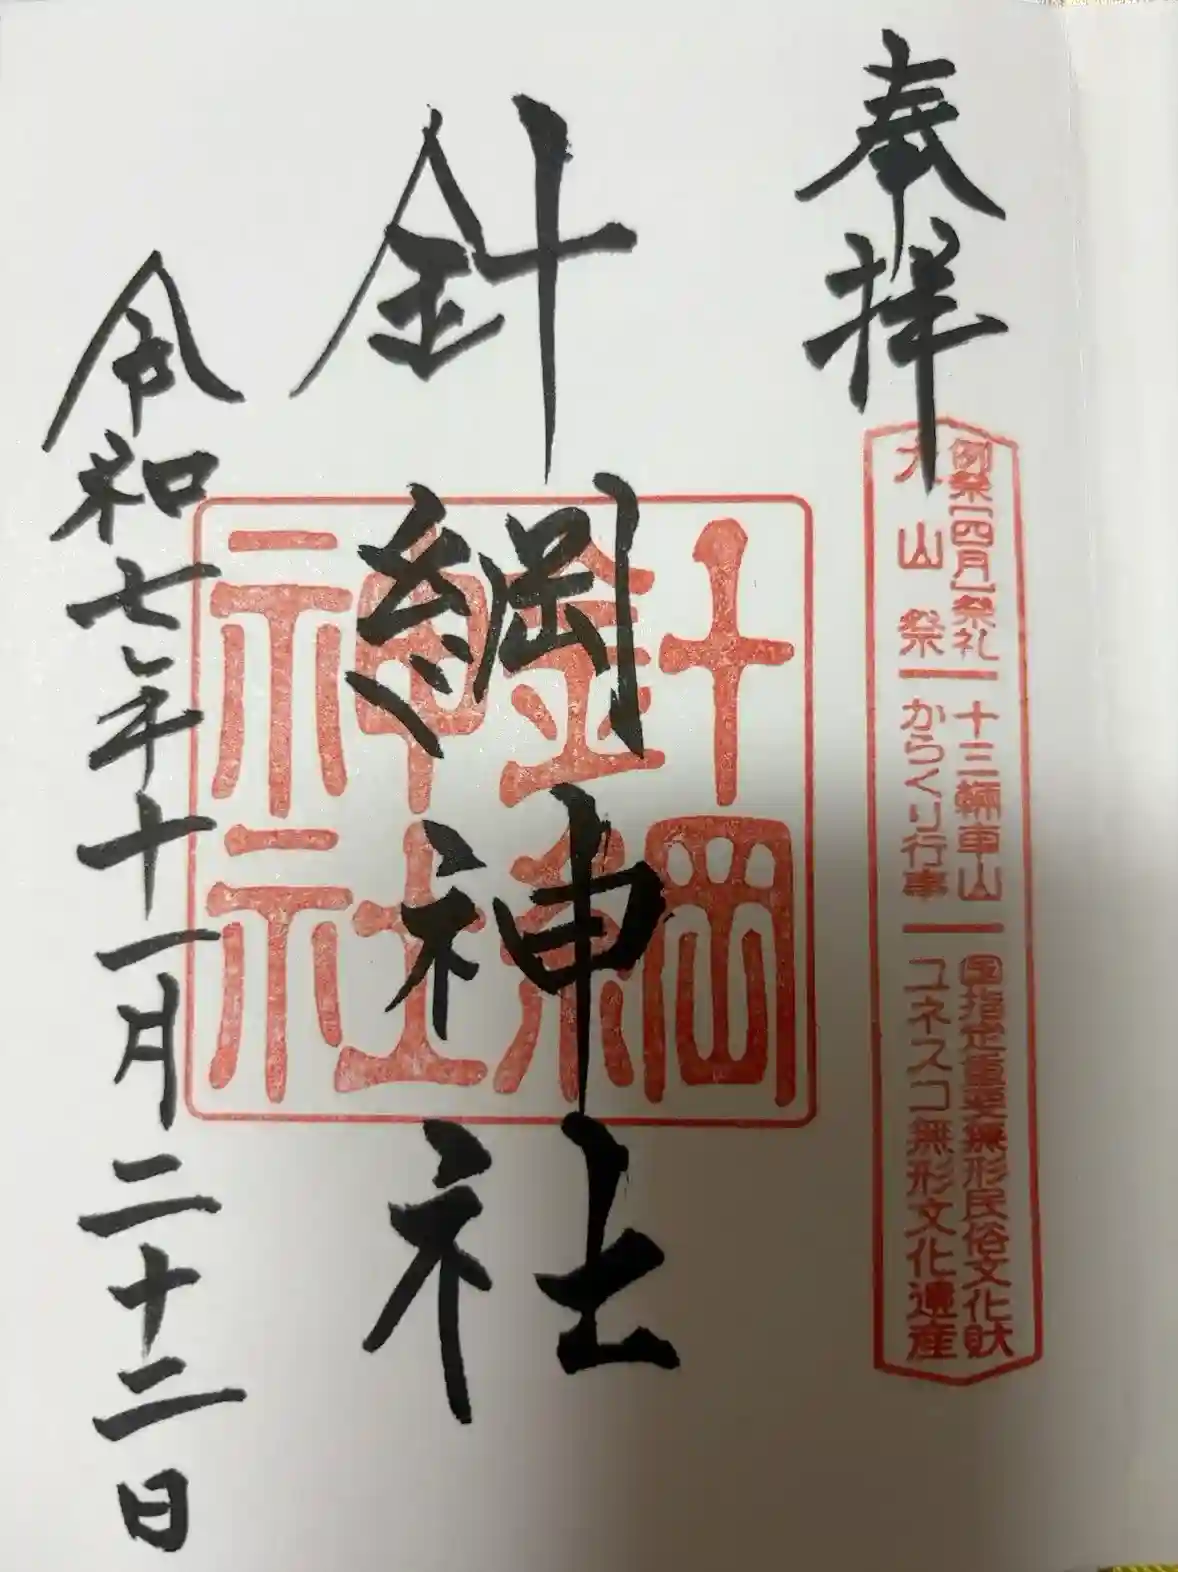 奉拝
例祭[四月]祭礼
犬山祭
十三輛車山
からくり行事
国指定重要無形民俗文化財
ユネスコ無形文化遺産
針綱神社
針綱
神社
令和七年十一月二十二日